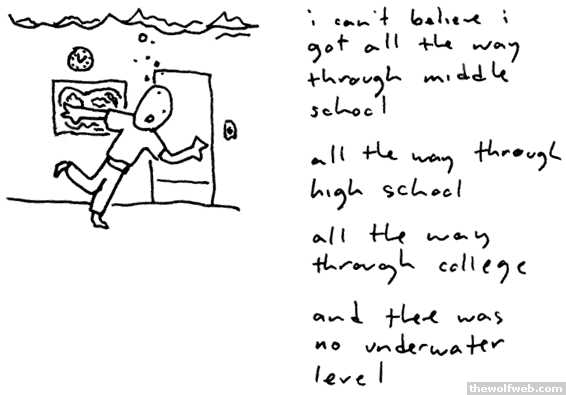 i can't believe i
got all the way
through middle
school
all the way through
high school
all the way
through college
and thee was
no underwater
level
thewolfweb.com